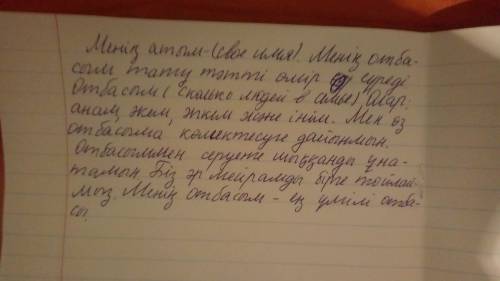 Менің атым-(свое имя). Менің отба-
сым тату тәтті өмір сүреді
Отбасым (сколько людей в семье). Олар:
анам, әкем, әжем және інім. Мен өз
отбасыма көмектесуге дайынмын.
Отбасыммен серуенге шыққанды ұна-
тамын. Біз әр мейрамды бірге тойлай-
мыз. Менің отбасым - ең үлгілі отба-
сы.